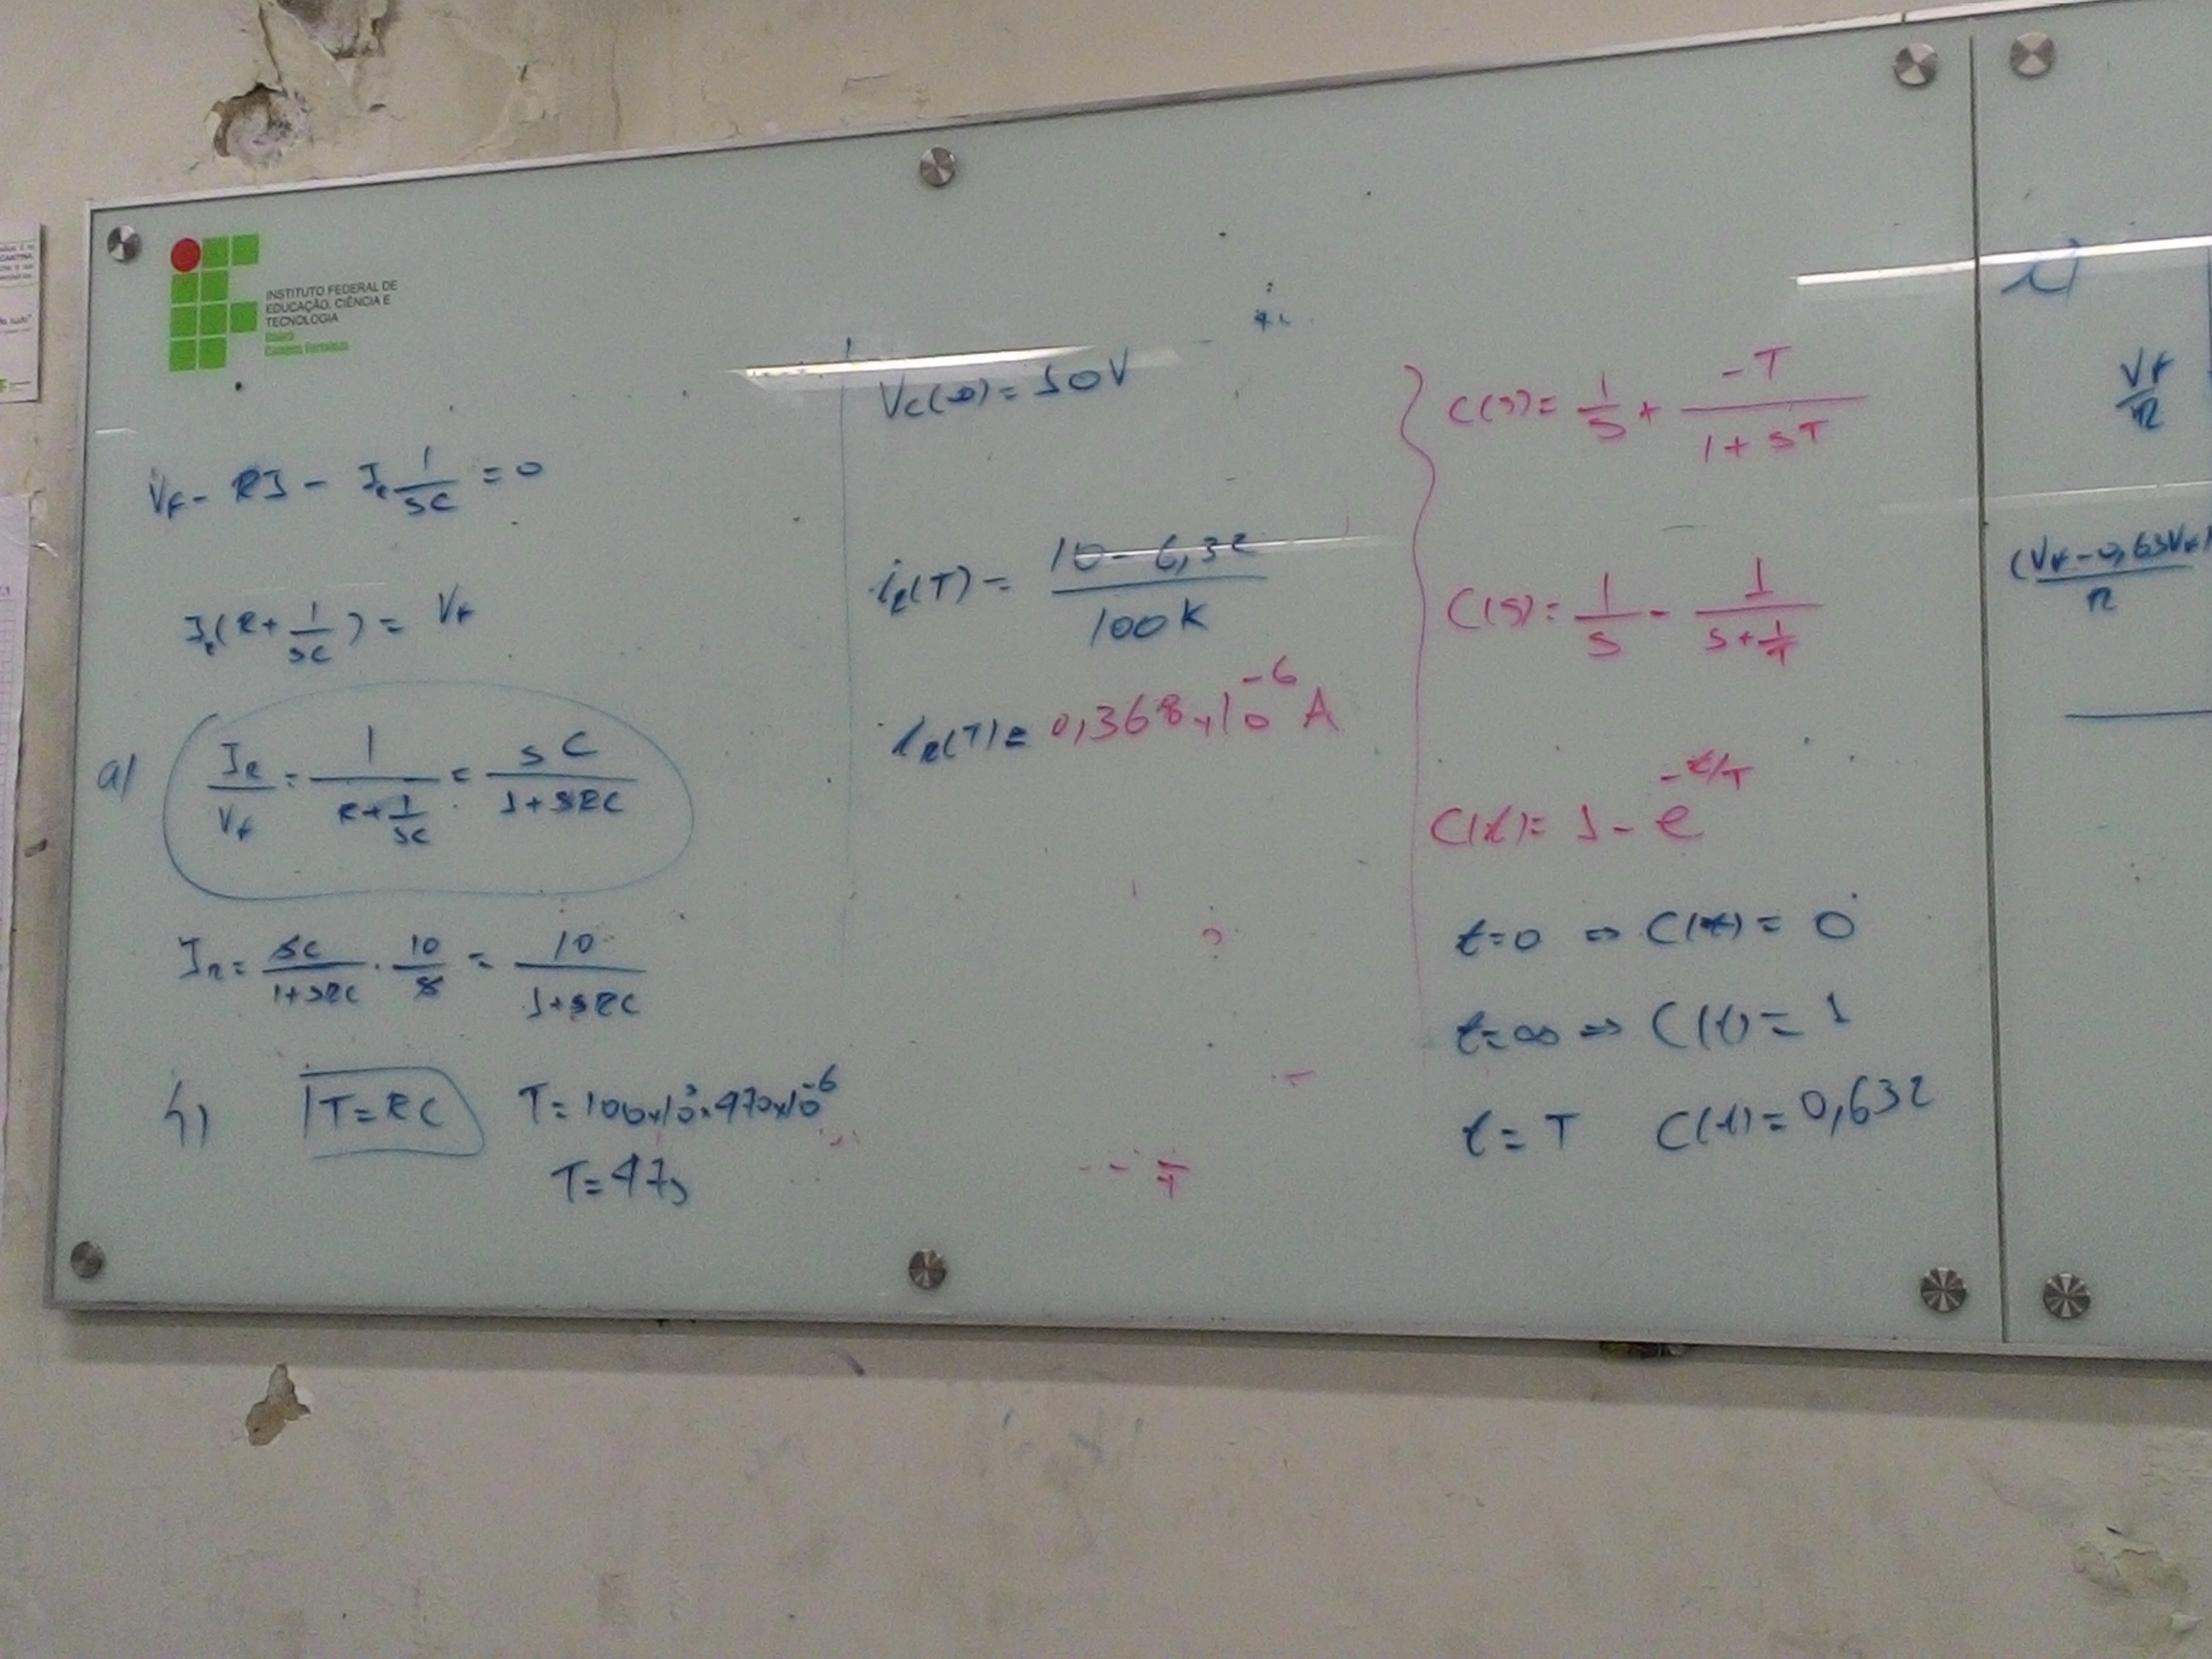 INSTITUTO FEDERAL DE
EDUCAÇÃO, CIÊNCIA E
TECNOLOGIA
Ceará
Campus Fortaleza
Vf - RI - I_R 1/sC = 0
I_R(R + 1/sC) = Vf
a) I_R/Vf = 1/(R + 1/sC) = sC/(1+sRC)
I_R = sC/(1+sRC) · 10/s = 10/(1+sRC)
b) T=RC T= 100x10^3x470x10^-6
T= 47s
Vc(∞) = 10V
i_R(T) = (10 - 6,32)/100K
i_R(T) = 0,368x10^-6 A
C(s) = 1/s + -T/(1+sT)
C(s) = 1/s - 1/(s+1/T)
C(t) = 1 - e^-t/T
t=0 ⇒ C(t) = 0
t=∞ ⇒ C(t) = 1
t=T C(t) = 0,632
Vf/R
(Vf-0,63Vf)/R